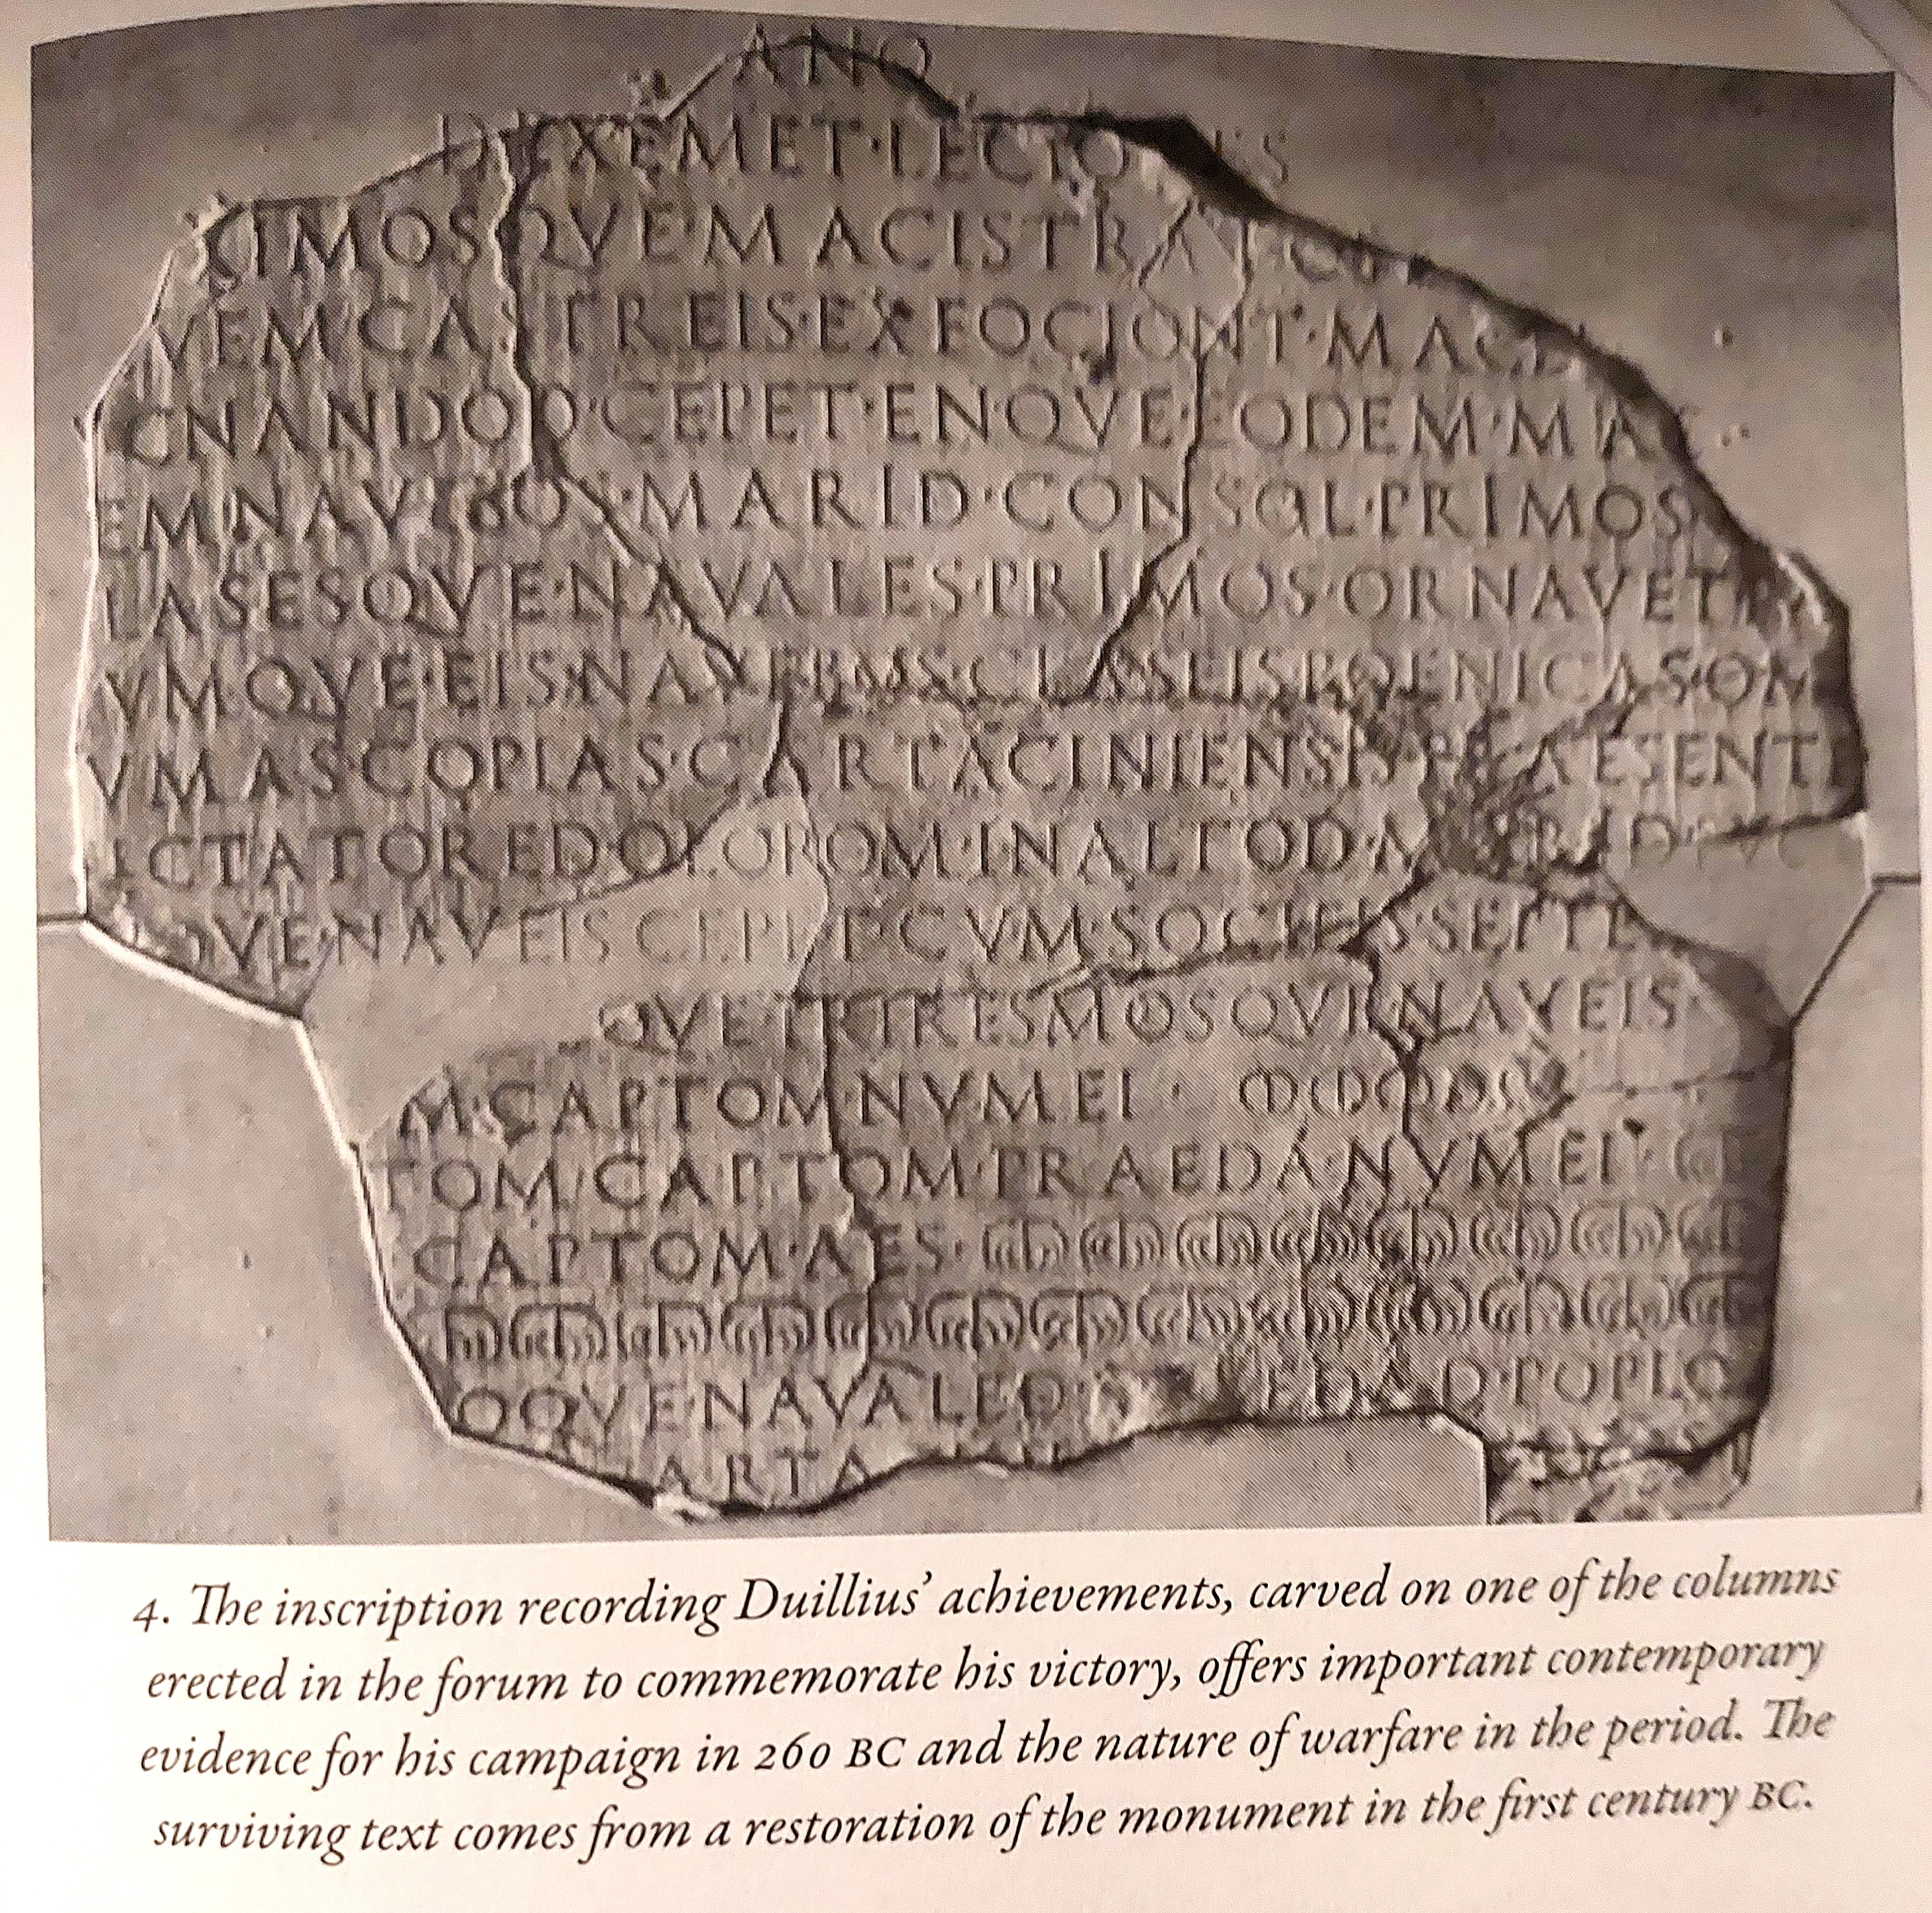 ANO
D·EXEMET·LECIONES
XIMOSQVE·MACISTRATOS
VEM·CASTREIS·EXFOCIONT·MACEL
CNANDOD·CEPET·ENQVE·EODEM·MAC
EM·NAVEBOS·MARID·CONSOL·PRIMOS
LASESQVE·NAVALES·PRIMOS·ORNAVET
VMQVE·EIS·NAVEBOS·CLASEIS·POENICAS·OM
VMAS·COPIAS·CARTACINIENSIS·PRAESENTE
ICTATORED·OLOROM·IN·ALTOD·MARID·PVC
QVE·NAVEIS·CEPET·CVM·SOCIEIS·SEPTE
QVE·TRIRESMOSQVE·NAVEIS
M·CAPTOM·NVMEI · ⅭⅠƆⅭⅠƆⅭⅠƆ
TOM·CAPTOM·PRAEDA·NVMEI
CAPTOM·AES·
OQVE·NAVALED·PRAEDAD·POPLO
ARTA
4. The inscription recording Duillius’ achievements, carved on one of the columns
erected in the forum to commemorate his victory, offers important contemporary
evidence for his campaign in 260 BC and the nature of warfare in the period. The
surviving text comes from a restoration of the monument in the first century BC.